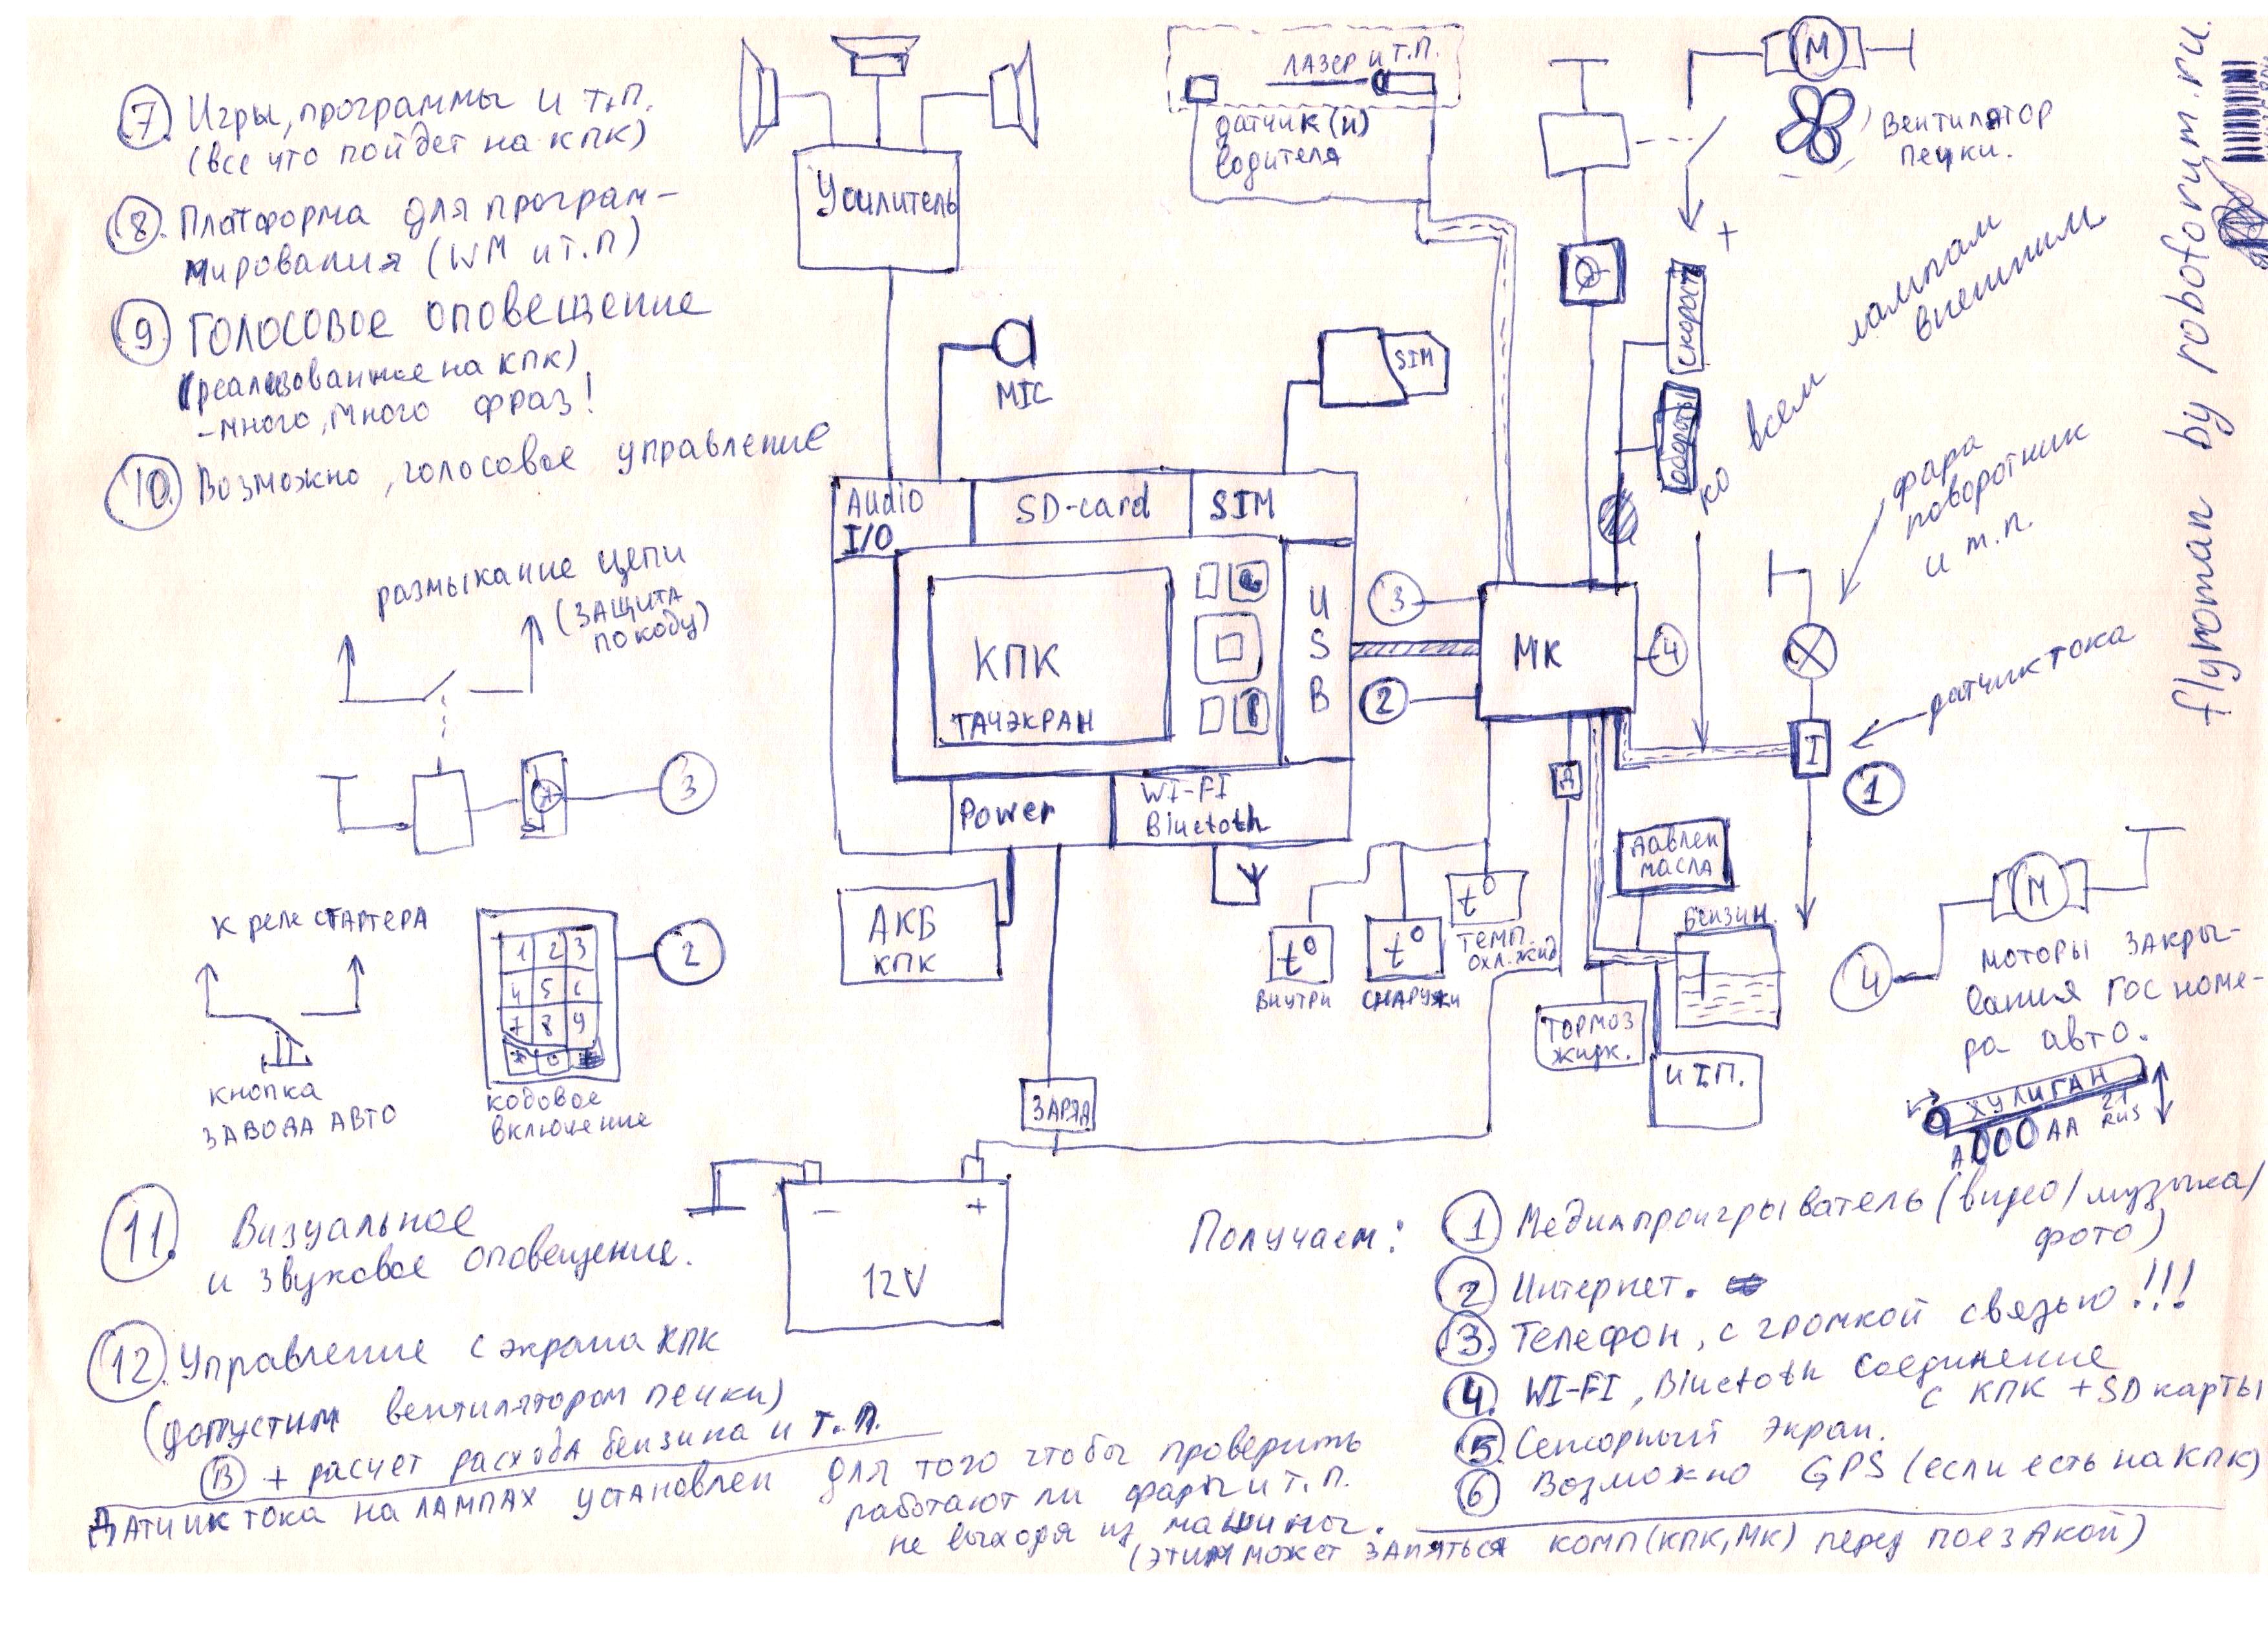 7. Игры, программы и т.п.
(все что пойдет на КПК)
8. Платформа для програм-
мирования (WM и т.п)
9 ГОЛОСОВОЕ ОПОВЕЩЕНИЕ
(реализованное на КПК)
- много, много фраз!
10. Возможно, голосовое управление
размыкание цепи
(ЗАЩИТА
ПО КОДУ)
3
К реле СТАРТЕРА
КНОПКА
ЗАВОДА АВТО
1 2 3
4 5 6
7 8 9
* 0
2
кодовое
включение
Усилитель
MIC
SIM
Audio
I/O
SD-card
SIM
КПК
ТАЧЭКРАН
U
S
B
Power
WI-FI
Bluetoth
АКБ
КПК
ЗАРЯД
12V
− +
ЛАЗЕР и т.п.
датчик(и)
водителя
M
Вентилятор
печки.
+
скорость
обороты
ко всем лампам
внешним
фара
поворотник
и т.п.
датчик тока
I
1
3
2
МК
4
Д
t°
внутри
t°
СНАРУЖИ
t°
ТЕМП.
ОХЛ.ЖИД
Давлен
масла
Бензин.
ТОРМОЗ
жидк.
и т.п.
M
4
моторы закры-
вания гос номе-
ра авто.
ХУЛИГАН
А000АА 21
RUS
flyroman by roboforum.ru.
11. Визуальное
и звуковое оповещение.
12. Управление с экрана КПК
(допустим вентилятором печки)
В + расчет расхода бензина и т.п.
Получаем:
1 Медиапроигрыватель (видео/музыка/
фото)
2 Интернет.
3. Телефон, с громкой связью!!!
4. WI-FI, Bluetoth соединение
с КПК + SD карты
5. Сенсорный экран.
6 Возможно GPS (если есть на КПК)
ДАТЧИК ТОКА НА ЛАМПАХ УСТАНОВЛЕН для того чтобы проверить
работают ли фары и т.п.
не выходя из машины.
(этим может заняться комп (КПК, МК) перед поездкой)